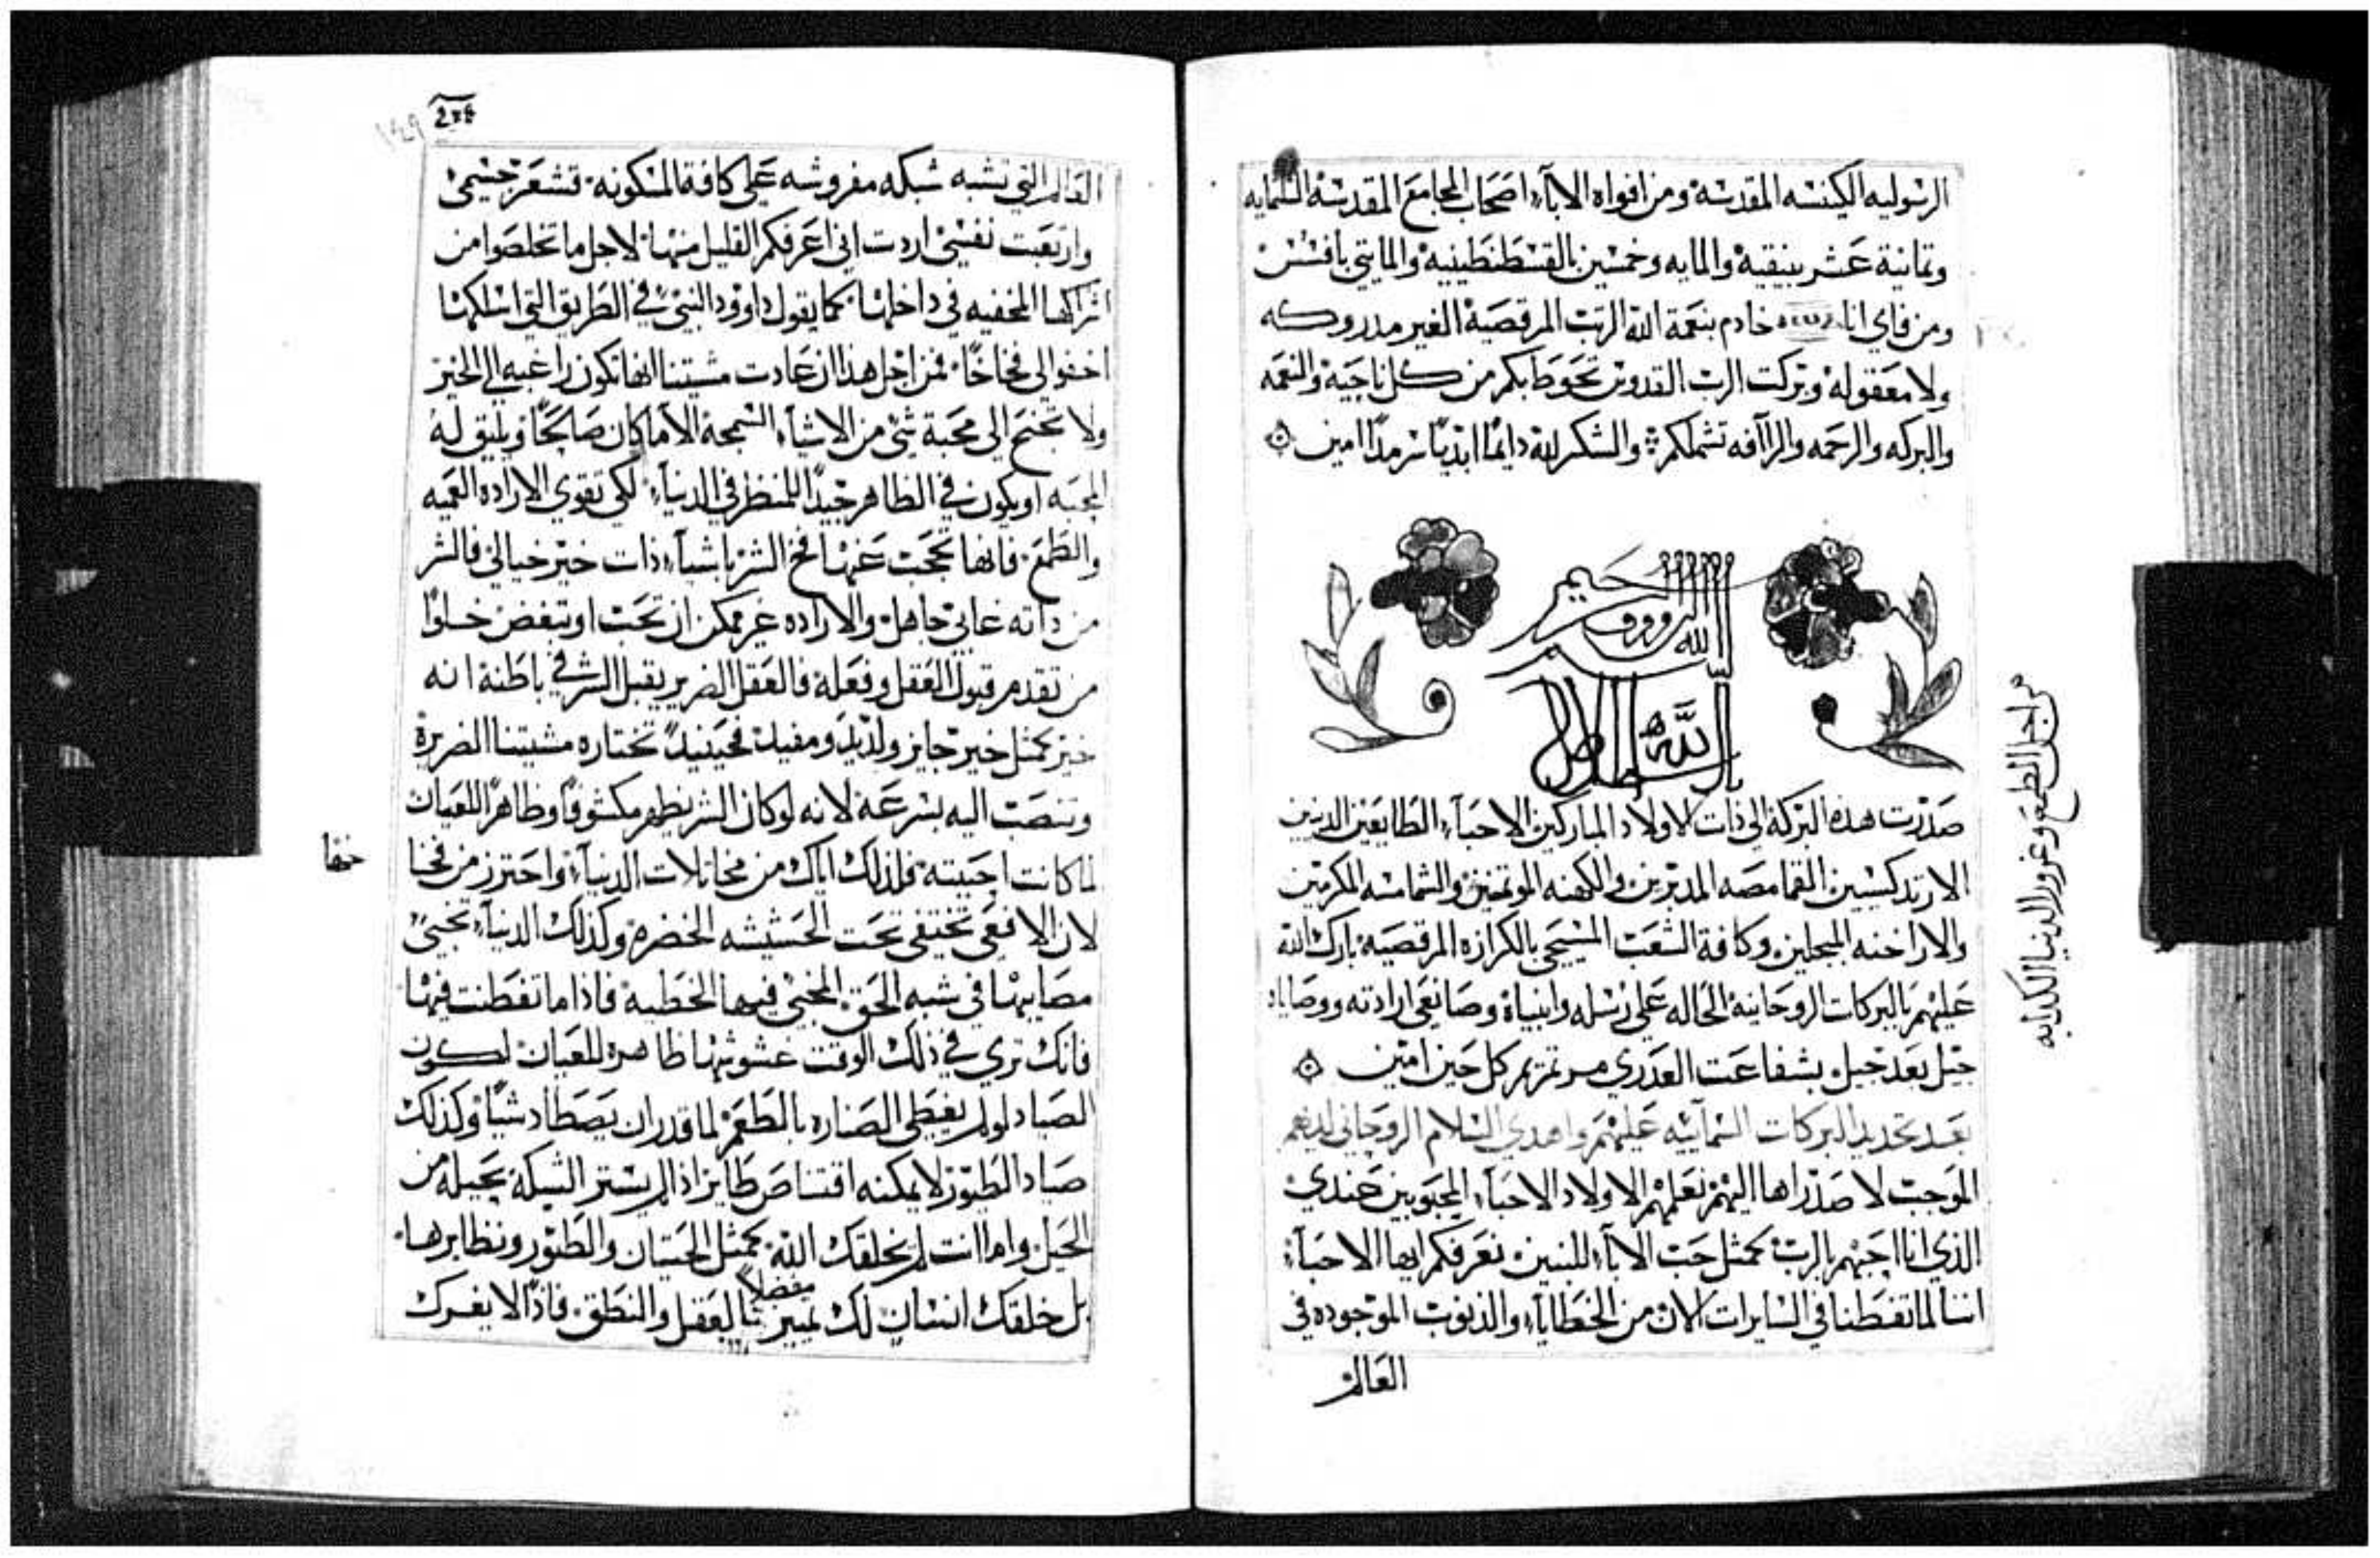 الرسوليه الكنيسه المقدسة ومن افواه الاباء اصحاب المجامع المقدسة الثلثمايه
وتمانية عشر بنيقية والمايه وخمسين بالقسطنطينية والمايتي بافسس
ومن فاي انا خادم بنعمة الله الرتب المرقصية الغير مدروكه
ولا معقوله وبركت الرب القدوس تحوط بكم من كل ناحية والنعمه
والبركه والرحمه والراافه تشملكم والشكر لله دايمًا ابديًا سرمدًا امين
الله الروؤف
صدرت هده البركة الي ذات الاولاد المباركين الاحباء الطايعين الدينين
الارتدكسيين القمامصه المدبرين والكهنه الموتمنين والشمامسه المكرمين
والاراخنه المبجلين وكافة الشعب المسيحي بالكرازه المرقصية بارك الله
عليهم بالبركات الروحانية الحاله علي رسله وانبياة وصانعي ارادته ووصاياه
جيل بعد جيل بشفاعت العدري مرتمريم كل حين امين
بعد تجديد البركات السمآييه عليهم واهدي السلام الروحاني لديهم
الموجب لاصدراها اليهم نعلمهم الاولاد الاحباء المحبوبين عندي
الذي انا احبهم بالرب كمثل حب الاباء للبنين نعرفكم ايها الاحباء
اننا لما تفطنا في السايرات الان من الخطاياء والذنوب الموجوده في
العالم
من اجل الطمع وغرور الدنيا الكدابه
العالم التي تشبه شبكه مفروشه علي كافة المسكونه تشعر جسمي
وارتعبت نفسي اردت اني اعرفكم القليل منها لاجل ما تخلصوا من
اشراكها المخفيه في داخلها كما يقول داوود النبي في الطريق التي اسلكها
اخفوا لي فخاخًا فمن اجل هذا ان عادت مشيتنا انها تكون راغبه الي الخير
ولا تجنح الي محبة شي من الاشياء السمجة الا ما كان صالحًا ويليق له
المحبه او يكون في الظاهر جيدًا للمنظر في الدنياء لكي تقوي الاراده العميه
والطمع فانها تحجب عنها فخ الشر باشياء ذات خير خيالي فالشر
من داته غابي جاهل والاراده غير ممكن ان تحب او تبغض خلوًا
من تقدم قبول العقل وفعله فالعقل الضرير يقبل الشر في باطنة انه
خير كمثل خير جايز ولذيد ومفيد فحينيد تختاره مشيتنا الضريرة
وتنصب اليه بسرعة لانه لو كان الشر يظهر مكشوفًا وظاهرًا للعيان
لما كانت احبيته فلذلك اياك من مخاتلات الدنياء واحترز من فخها
خفا
لان الافعي تختفي تحت الحشيشه الخضره وكذلك الدنياء تخبي
مصايبها في شبه الحق المخبي فيها الخطيه فاذا ما تفطنت فيها
فانك تري في ذلك الوقت غشوشها ظاهره للعيان لكون
الصياد لو لم يغطي الصناره بالطعم لما قدر ان يصطاد شيًا وكذلك
صياد الطيور لا يمكنه اقتناص طاير اذا لم يستر الشبكة بحيله من
الحيل واما انت لم يخلقك الله كمثل الحيتان والطيور ونظايرها
بل خلقك انسان لك تمييز مفضلاً بالعقل والنطق فاذًا لا يغرك